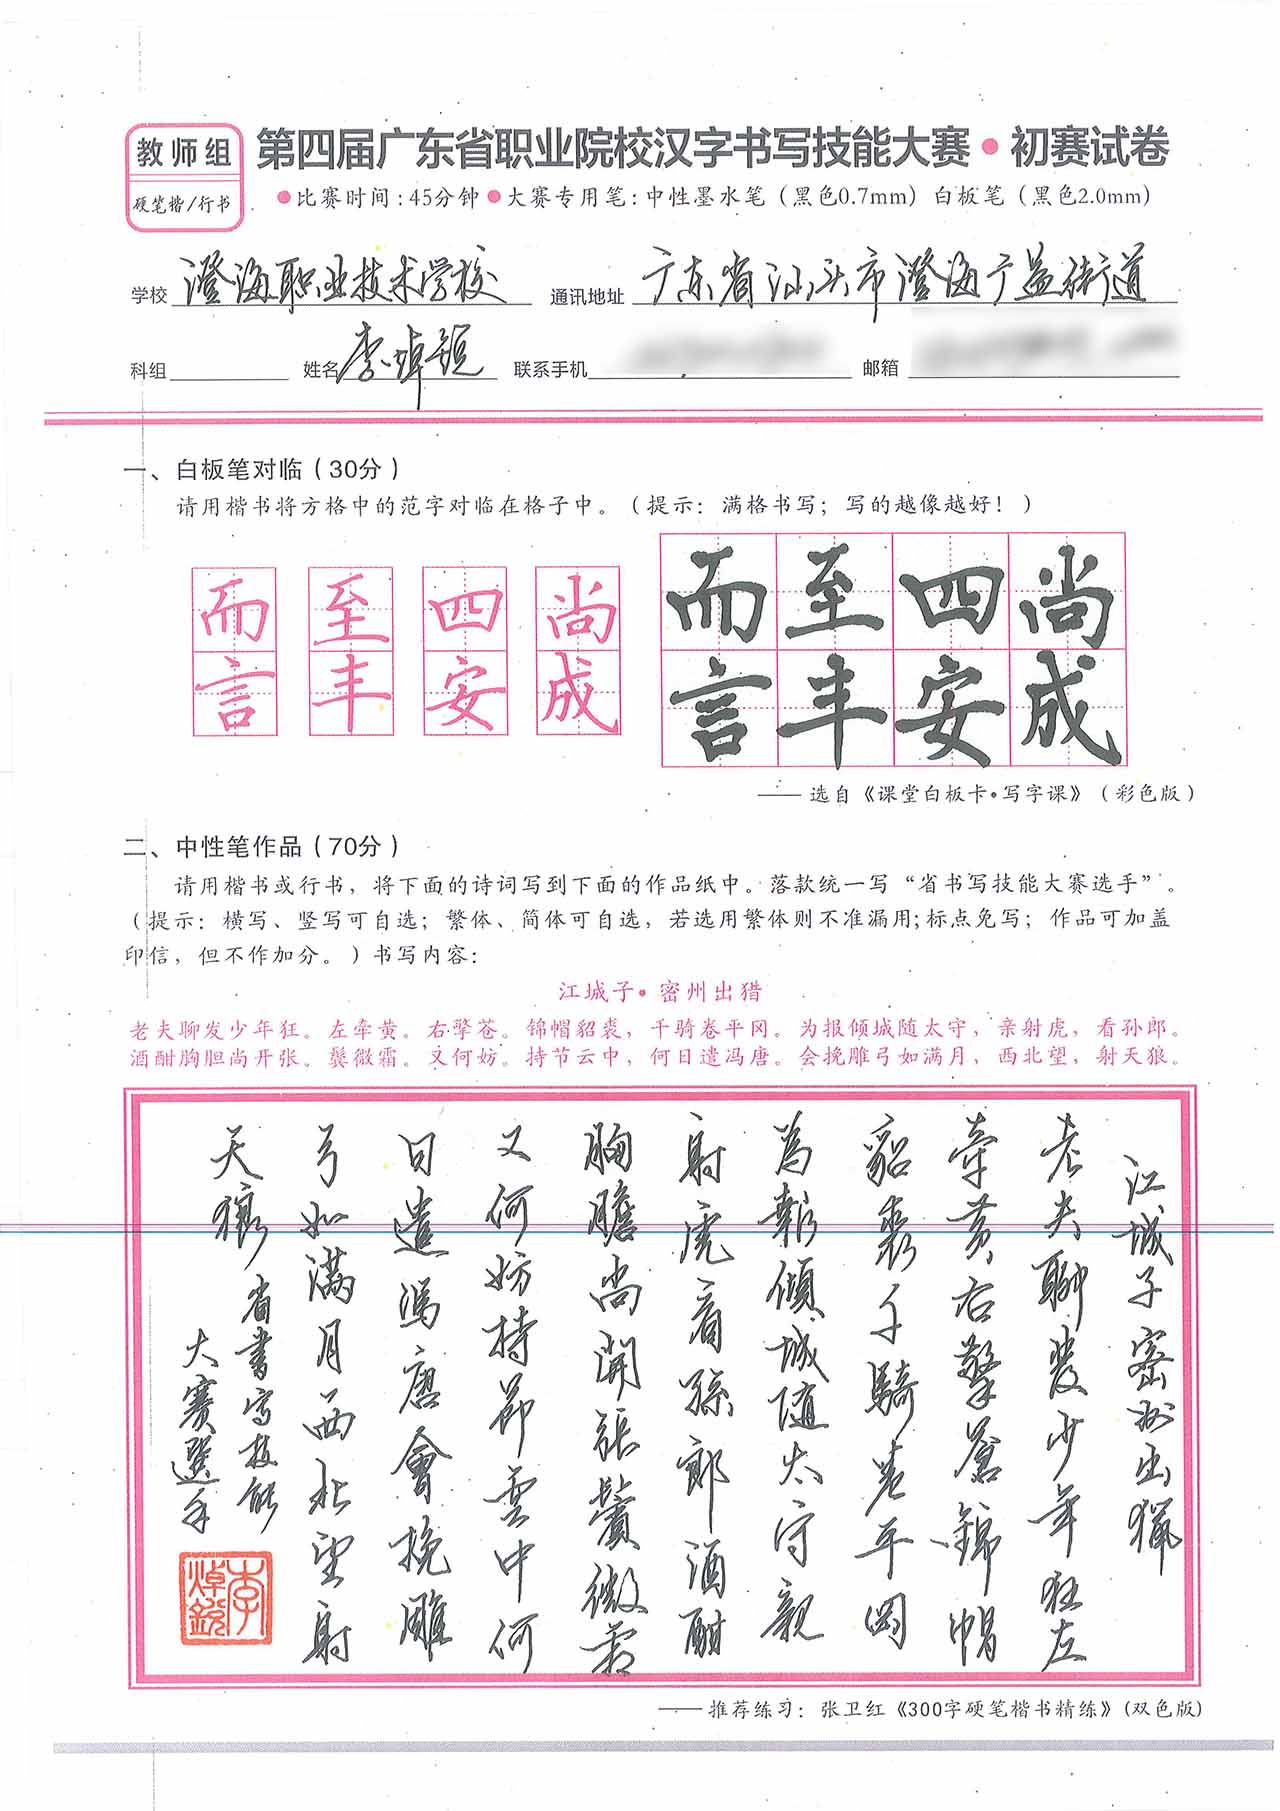 教师组
硬笔楷/行书
第四届广东省职业院校汉字书写技能大赛·初赛试卷
●比赛时间:45分钟●大赛专用笔:中性墨水笔（黑色0.7mm）白板笔（黑色2.0mm）
学校 澄海职业技术学校 通讯地址 广东省汕头市澄海广益街道
科组 姓名 李焯锐 联系手机 邮箱
一、白板笔对临（30分）
请用楷书将方格中的范字对临在格子中。（提示：满格书写；写的越像越好！）
而至四尚
言丰安成
而至四尚
言丰安成
——选自《课堂白板卡·写字课》（彩色版）
二、中性笔作品（70分）
请用楷书或行书，将下面的诗词写到下面的作品纸中。落款统一写“省书写技能大赛选手”。
（提示：横写、竖写可自选；繁体、简体可自选，若选用繁体则不准漏用;标点免写；作品可加盖
印信，但不作加分。）书写内容：
江城子·密州出猎
老夫聊发少年狂。左牵黄。右擎苍。锦帽貂裘，千骑卷平冈。为报倾城随太守，亲射虎，看孙郎。
酒酣胸胆尚开张。鬓微霜。又何妨。持节云中，何日遣冯唐。会挽雕弓如满月，西北望，射天狼。
江城子密州出獵
老夫聊發少年狂左
牽黄右擎蒼錦帽
貂裘千騎卷平岡
為報傾城随太守親
射虎看孫郎酒酣
胸膽尚開張鬢微霜
又何妨持節雲中何
日遣馮唐會挽雕
弓如满月西北望射
天狼
省書写技能
大賽選手
李焯銳
——推荐练习：张卫红《300字硬笔楷书精练》(双色版)